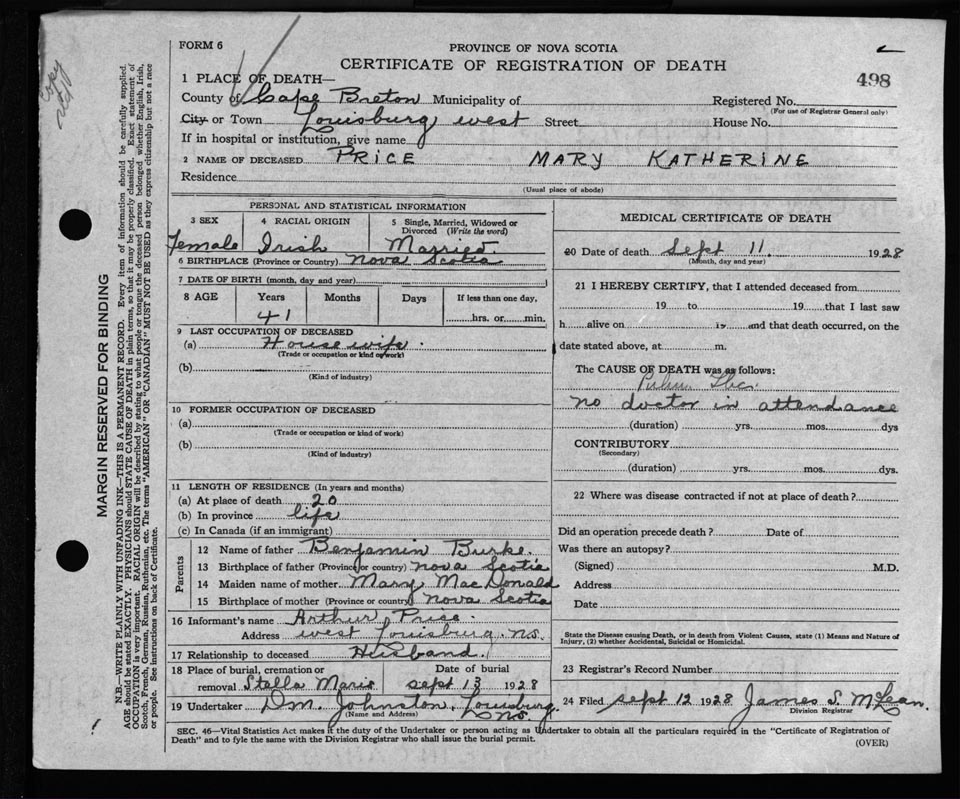 copy
FORM 6
PROVINCE OF NOVA SCOTIA
CERTIFICATE OF REGISTRATION OF DEATH
498
1 PLACE OF DEATH—
County of Cape Breton Municipality of Registered No.
(For use of Registrar General only)
City or Town Louisburg west Street House No.
If in hospital or institution, give name
2 NAME OF DECEASED PRICE MARY KATHERINE
Residence
(Usual place of abode)
PERSONAL AND STATISTICAL INFORMATION
3 SEX 4 RACIAL ORIGIN 5 Single, Married, Widowed or Divorced (Write the word)
Female Irish Married.
6 BIRTHPLACE (Province or Country) Nova Scotia
7 DATE OF BIRTH (month, day and year)
8 AGE Years Months Days If less than one day,
41 hrs. or min.
9 LAST OCCUPATION OF DECEASED
(a) House wife.
(Trade or occupation or kind of work)
(b)
(Kind of industry)
10 FORMER OCCUPATION OF DECEASED
(a)
(Trade or occupation or kind of work)
(b)
(Kind of industry)
11 LENGTH OF RESIDENCE (In years and months)
(a) At place of death 20
(b) In province life
(c) In Canada (if an immigrant)
Parents
12 Name of father Benjamin Burke.
13 Birthplace of father (Province or country) Nova Scotia
14 Maiden name of mother Mary MacDonald
15 Birthplace of mother (Province or country) Nova Scotia
16 Informant's name Arthur Price.
Address west Louisburg. N.S.
17 Relationship to deceased Husband.
18 Place of burial, cremation or Date of burial
removal Stella Maris sept 13 1928
19 Undertaker D.M. Johnston, Louisburg. N.S.
(Name and Address)
MEDICAL CERTIFICATE OF DEATH
20 Date of death Sept 11. 1928
(Month, day and year)
21 I HEREBY CERTIFY, that I attended deceased from
19 to 19 that I last saw
h alive on 19 and that death occurred, on the
date stated above, at m.
The CAUSE OF DEATH was as follows:
no doctor in attendance
(duration) yrs. mos. dys
CONTRIBUTORY
(Secondary)
(duration) yrs. mos. dys.
22 Where was disease contracted if not at place of death?
Did an operation precede death? Date of
Was there an autopsy?
(Signed) M.D.
Address
Date
State the Disease causing Death, or in death from Violent Causes, state (1) Means and Nature of
Injury, (2) whether Accidental, Suicidal or Homicidal.
23 Registrar's Record Number
24 Filed sept 12 1928 James S. McLean.
Division Registrar
SEC. 46—Vital Statistics Act makes it the duty of the Undertaker or person acting as Undertaker to obtain all the particulars required in the "Certificate of Registration of
Death" and to fyle the same with the Division Registrar who shall issue the burial permit.
(OVER)
MARGIN RESERVED FOR BINDING
N.B.—WRITE PLAINLY WITH UNFADING INK—THIS IS A PERMANENT RECORD. Every item of information should be carefully supplied.
AGE should be stated EXACTLY. PHYSICIANS should STATE CAUSE OF DEATH in plain terms, so that it may be properly classified. Exact statement of
OCCUPATION is very important. RACIAL ORIGIN will be described by stating to what people or tongue the deceased person belonged whether English, Irish,
Scotch, French, German, Russian, Ruthenian, etc. The terms "AMERICAN" OR "CANADIAN" MUST NOT BE USED as they express citizenship but not a race
or people. See instructions on back of Certificate.